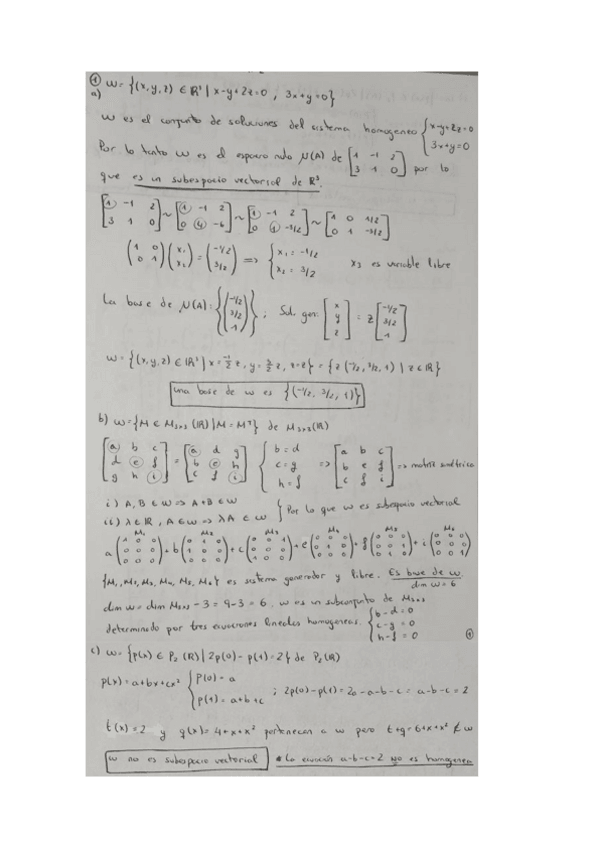 ① W = {(x,y,z) ∈ ℝ³ | x-y+2z=0 , 3x+y=0}
a)
W es el conjunto de soluciones del sistema homogeneo { x-y+2z=0
3x+y=0
Por lo tanto W es el espacio nulo N(A) de [1 -1 2; 3 1 0] por lo
que es un subespacio vectorial de ℝ³.
[① -1 2; 3 1 0] ~ [① -1 2; 0 ④ -6] ~ [① -1 2; 0 ① -3/2] ~ [1 0 1/2; 0 1 -3/2]
(1 0; 0 1)(x₁; x₂) = (-1/2; 3/2) => { x₁ = -1/2 ; x₂ = 3/2 x₃ es variable libre
La base de N(A): {(-1/2; 3/2; 1)} ; Sol. gen: [x; y; z] = z [-1/2; 3/2; 1]
W = {(x,y,z) ∈ ℝ³ | x = -1/2 z, y = 3/2 z, z=z} = {z(-1/2, 3/2, 1) | z ∈ ℝ}
una base de W es {(-1/2, 3/2, 1)}
b) W = {M ∈ M₃ₓ₃ (ℝ) | M = Mᵀ} de M₃ₓ₃(ℝ)
[a b c; d e f; g h i] = [a d g; b e h; c f i] { b=d ; c=g ; h=f => [a b c; b e f; c f i] => matriz simétrica
i) A, B ∈ W => A+B ∈ W
ii) λ ∈ ℝ, A ∈ W => λA ∈ W } Por lo que W es subespacio vectorial
M₁ M₂ M₃ M₄ M₅ M₆
a (1 0 0; 0 0 0; 0 0 0) + b (0 1 0; 1 0 0; 0 0 0) + c (0 0 1; 0 0 0; 1 0 0) + e (0 0 0; 0 1 0; 0 0 0) + f (0 0 0; 0 0 1; 0 1 0) + i (0 0 0; 0 0 0; 0 0 1)
{M₁, M₂, M₃, M₄, M₅, M₆} es sistema generador y libre. Es base de W.
dim W = 6
dim W = dim M₃ₓ₃ - 3 = 9-3 = 6. W es un subconjunto de M₃ₓ₃
determinado por tres ecuaciones lineales homogeneas. { b-d=0
c-g=0
h-f=0
①
c) W = {p(x) ∈ P₂ (ℝ) | 2p(0) - p(1) = 2} de P₂(ℝ)
p(x) = a+bx+cx² { p(0) = a ; p(1) = a+b+c ; 2p(0)-p(1) = 2a-a-b-c = a-b-c = 2
t(x) = 2 y q(x) = 4+x+x² pertenecen a W pero t+q = 6+x+x² ∉ W
W no es subespacio vectorial * La ecuación a-b-c=2 no es homogenea